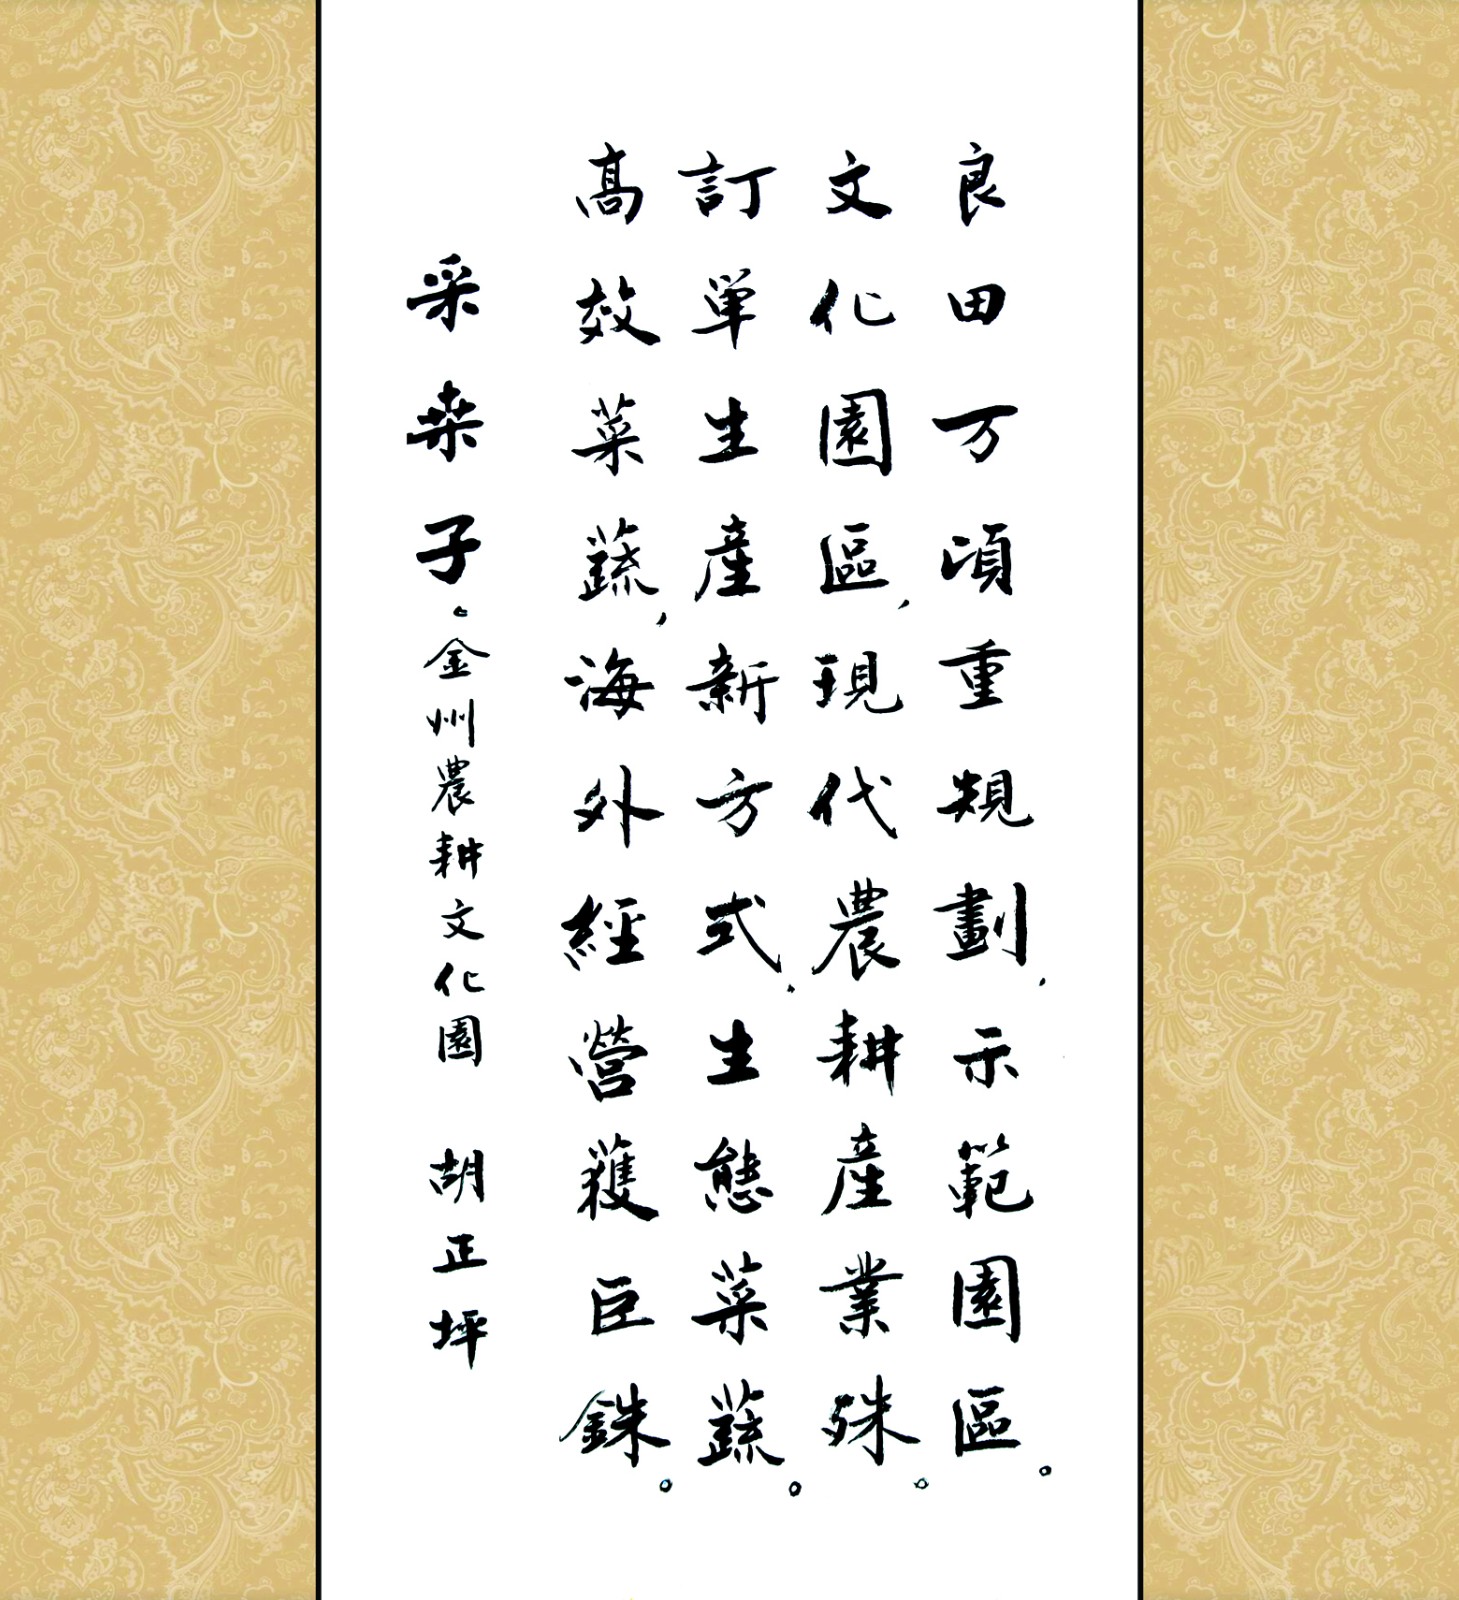 良田万頃重規劃，示範園區。
文化園區，現代農耕產業殊。
訂単生產新方式，生態菜蔬。
高效菜蔬，海外經營獲巨銖。
采桑子。金州農耕文化園　胡正坪